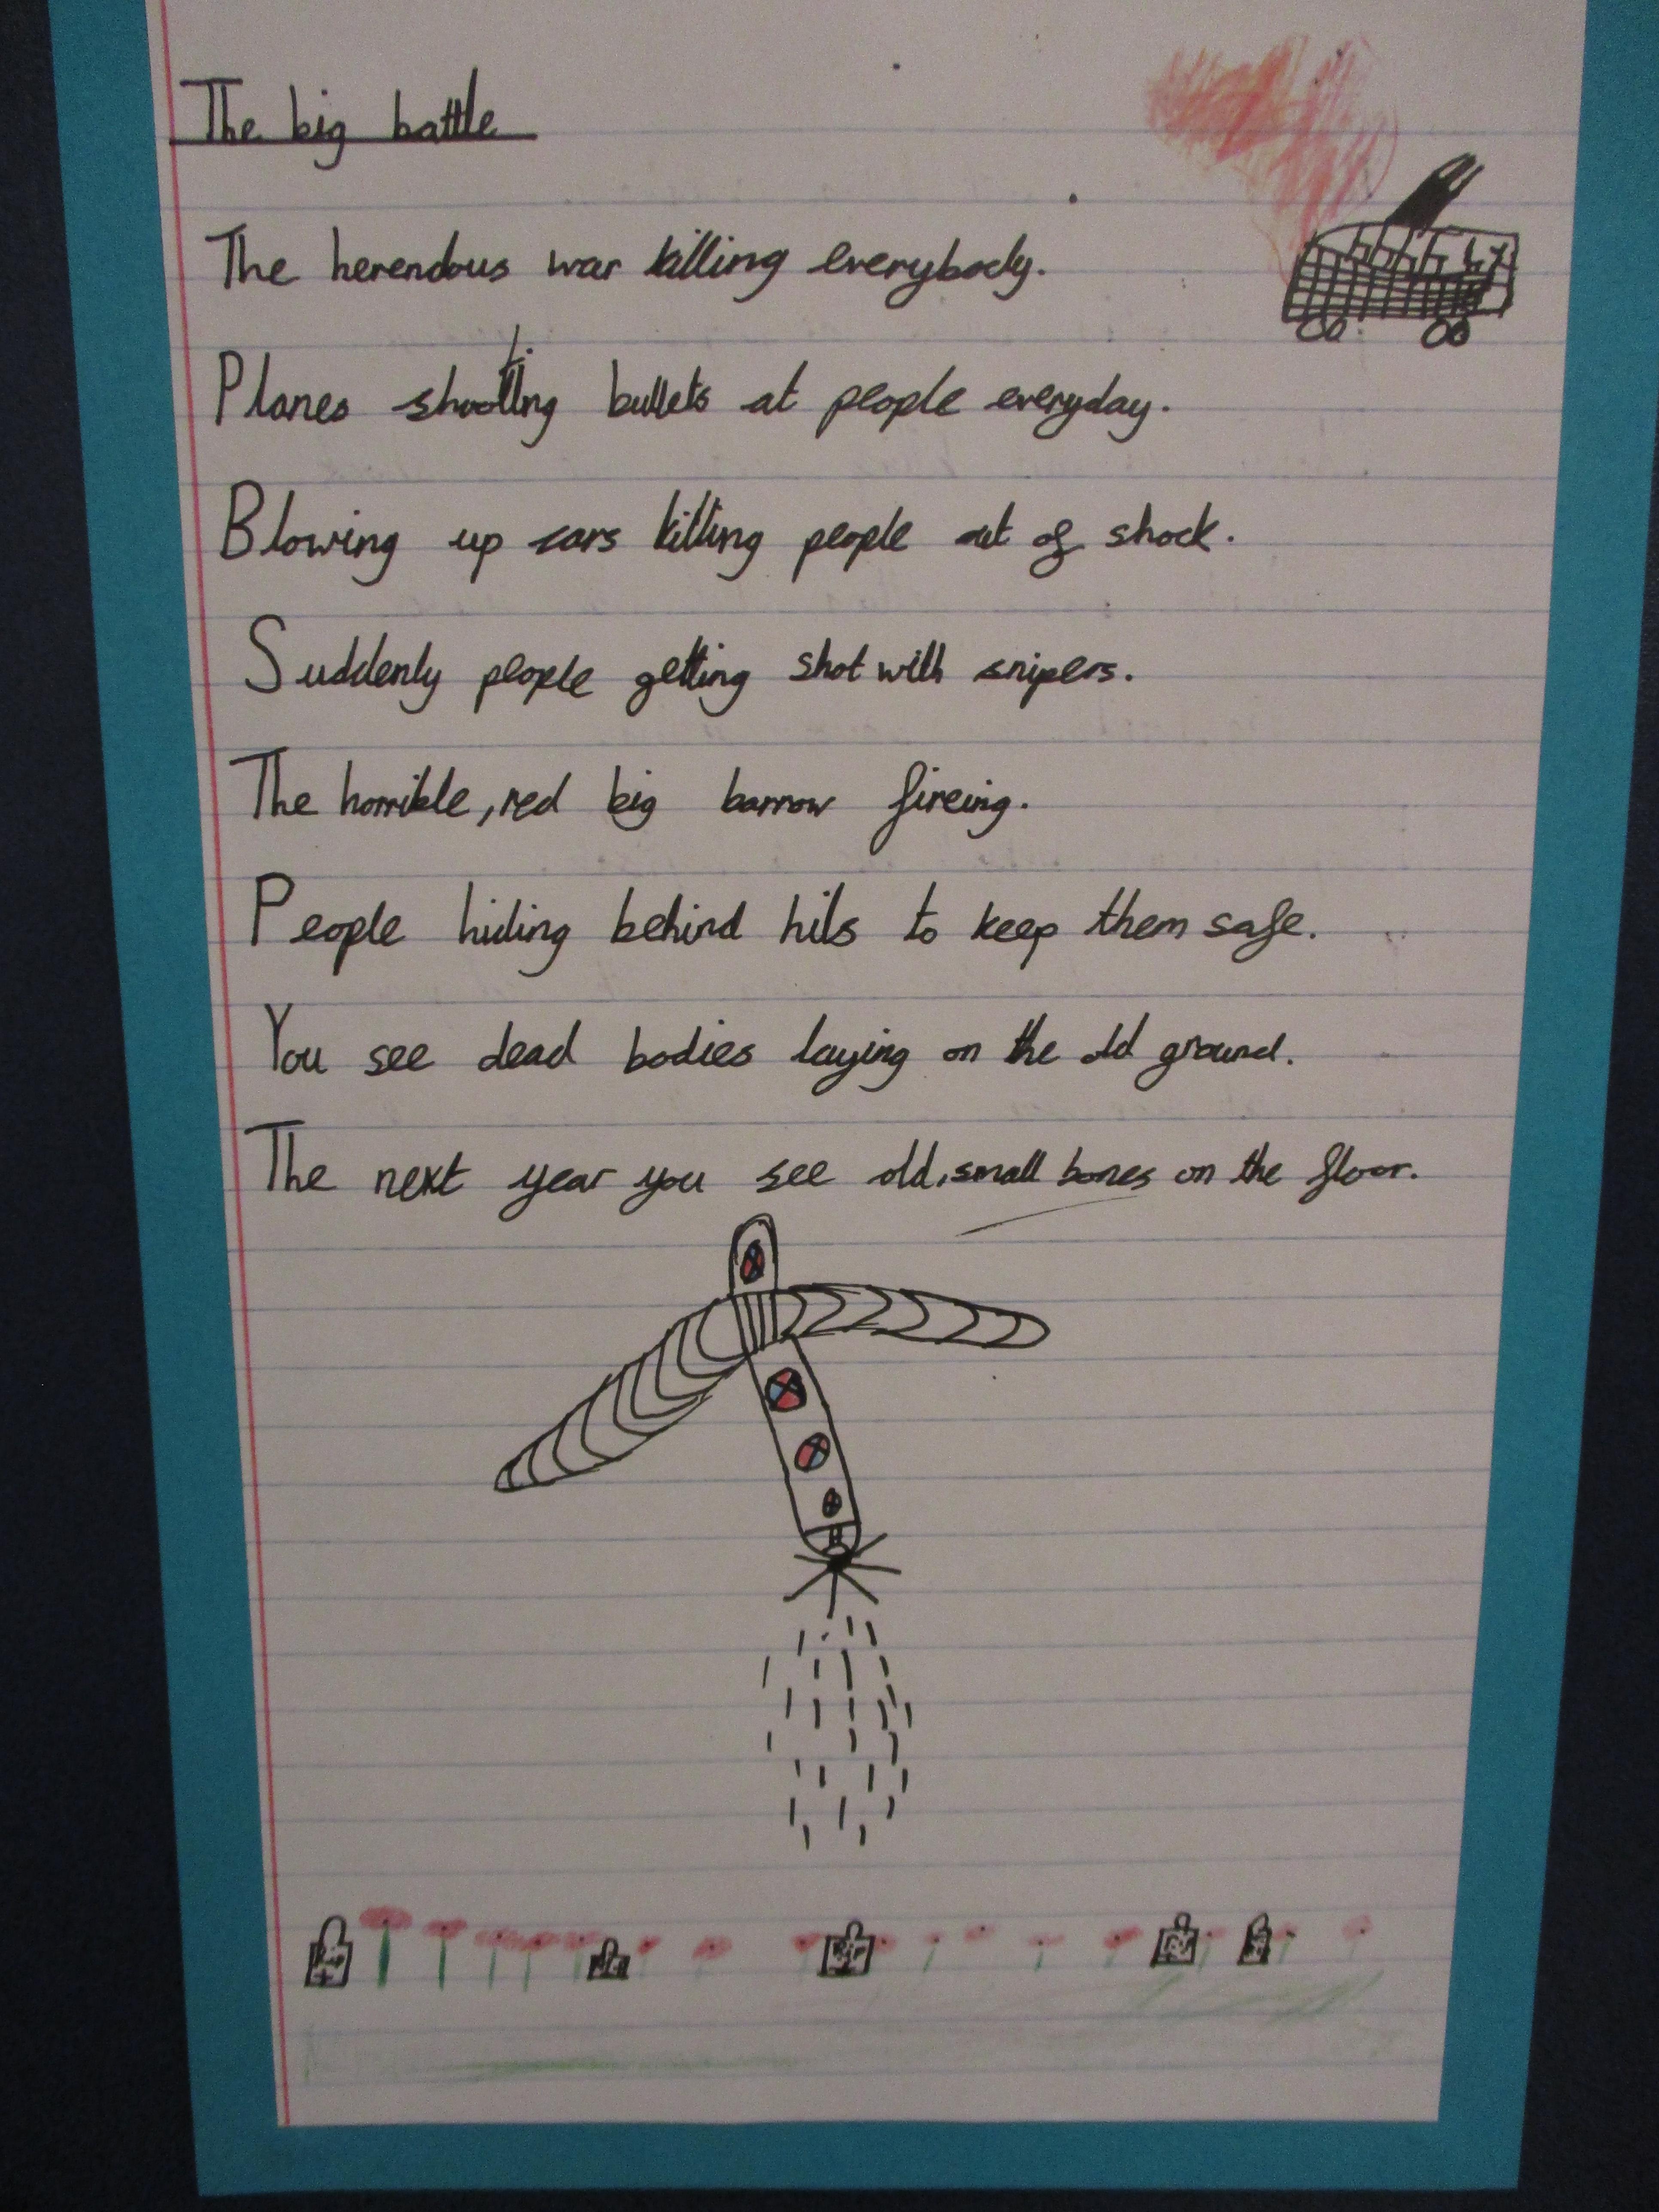 The big battle
The herendous war killing everybody.
Planes shootting bullets at people everyday.
Blowing up cars killing people out of shock.
Suddenly people getting shot with snipers.
The horrible, red big barrow fireing.
People hiding behind hils to keep them safe.
You see dead bodies laying on the old ground.
The next year you see old, small bones on the floor.